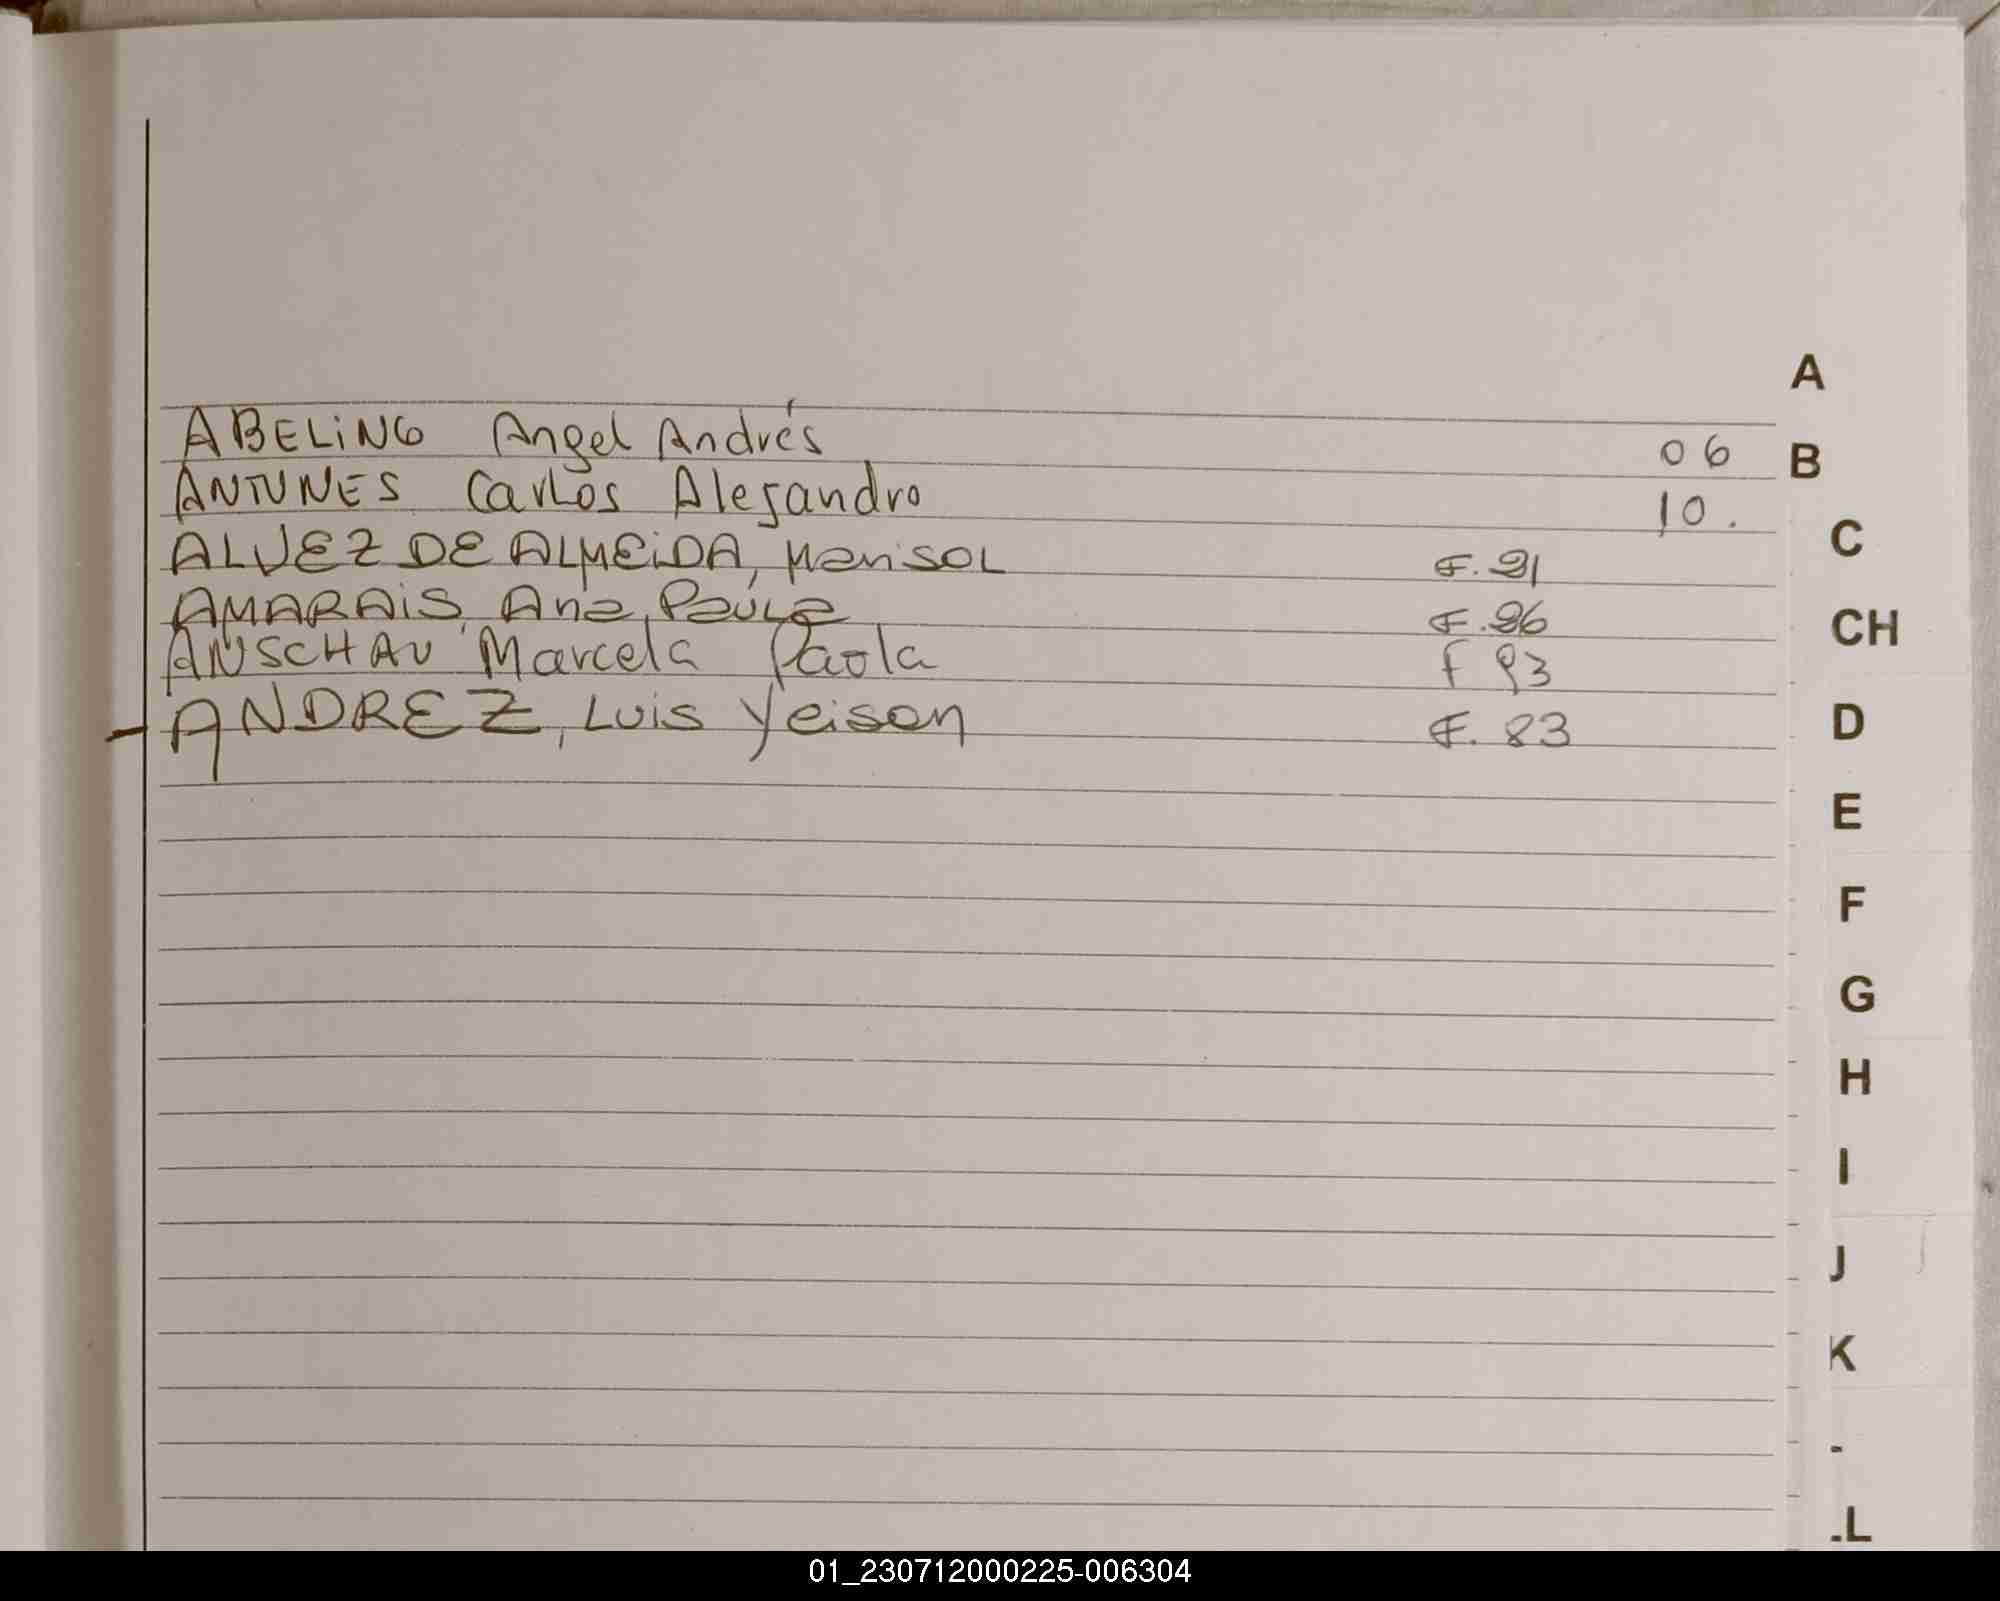 A
ABELiNG Angel Andrés 06
B
ANTUNES Carlos Alejandro 10.
C
ALVEZ DE ALMEiDA, Marisol F. 91
AMARAIS, Ana Paula F. 96
CH
ANSCHAU Marcela Paola F 93
ANDREZ, Luis Yeison F. 83
D
E
F
G
H
I
J
K
-
.L
01_230712000225-006304